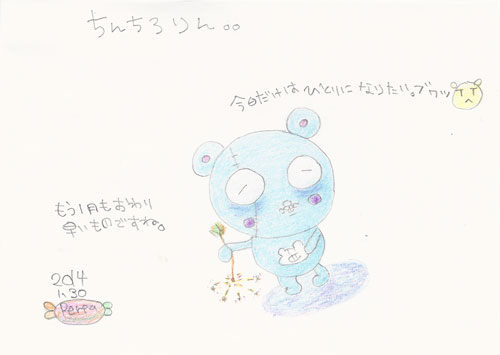 ちんちろりん。。
今日だけは ひとりに なりたい。ブワッ
TT
もう1月もおわり
早いものですね。
2014
1.30
Perfa